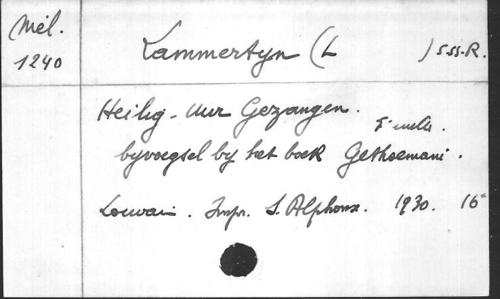 Mél.
1240
Lammertyn (L ) s.ss.R.
Heilig-Uur Gezangen.
byvoegsel by het boek Gethsemani.
Louvain. Impr. S. Alphonse. 1930. 16°